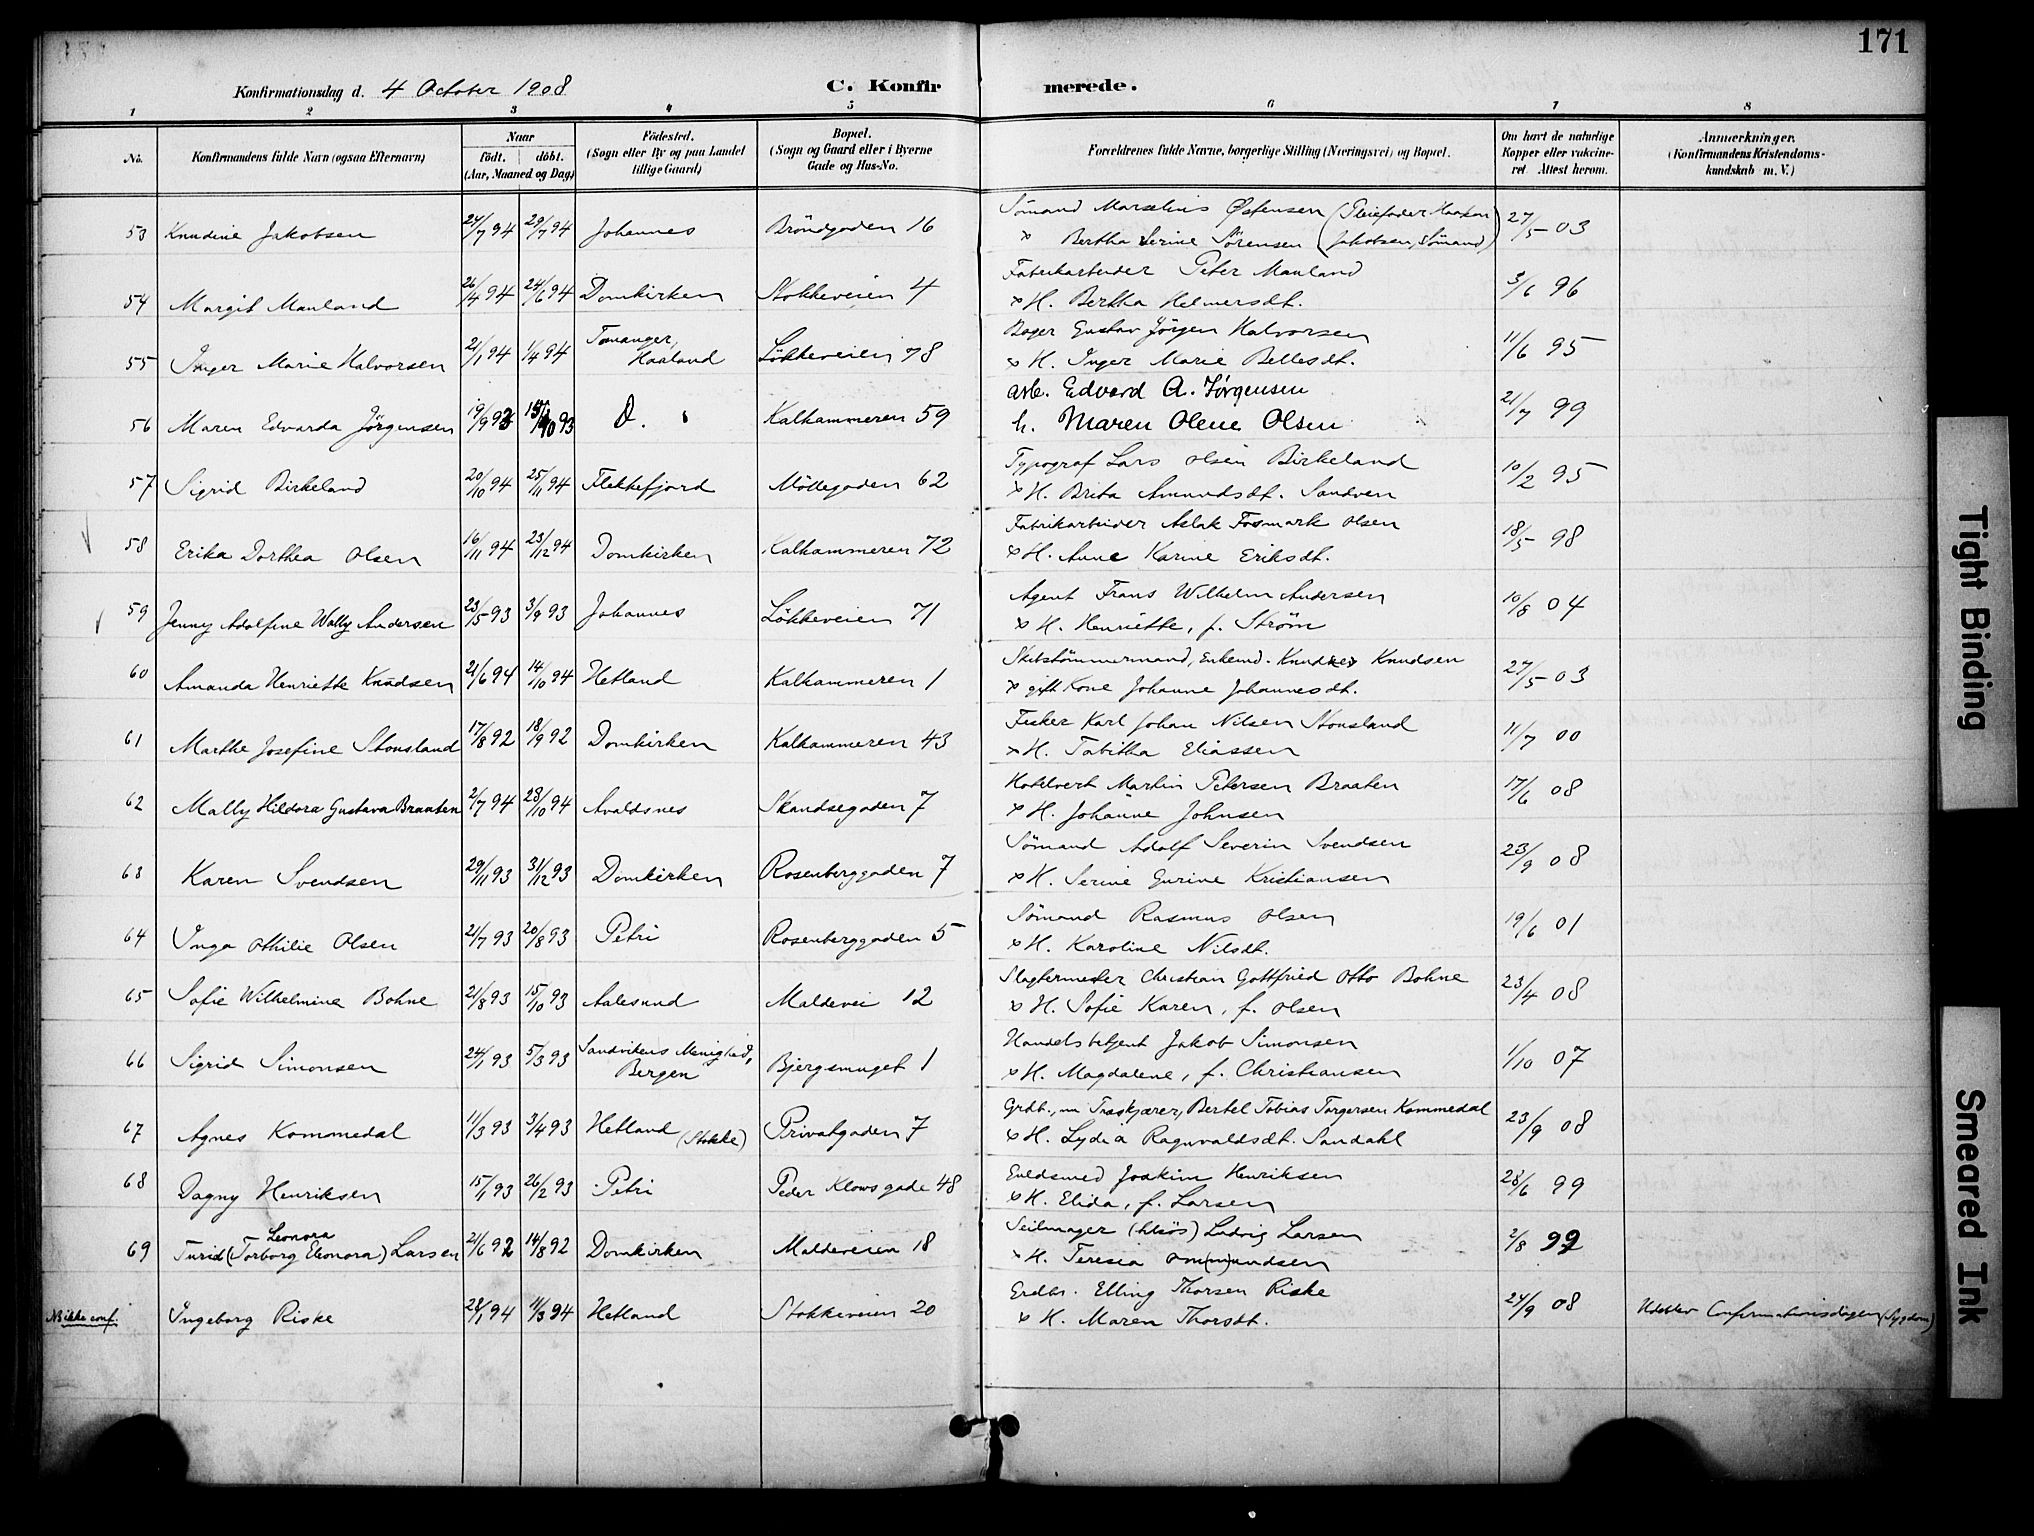 171
Konfirmationsdag d. 4 October 1908 C. Konfirmerede.
1 2 3 4 5 6 7 8
No. Konfirmandens fulde Navn (ogsaa Efternavn) Naar födt. döbt. (Aar, Maaned og Dag) Födested. (Sogn eller By og paa Landet tillige Gaard) Bopæl. (Sogn og Gaard eller i Byerne Gade og Hus-No. Forældrenes fulde Navne, borgerlige Stilling (Næringsvei) og Bopæl. Om havt de naturlige Kopper eller vakcineret. Attest herom. Anmærkninger. (Konfirmandens Kristendomskundskab m. V.)
53 Knudine Jakobsen 24/7 94 29/7 94 Johannes Bröndgaden 16 Sömand Marselius Østensen (Pleiefader Haakon 27/5 03
x Bertha Serine Sörensen Jakobsen, Sömand)
54 Margit Mauland 26/4 94 24/6 94 Domkirken Stokkeveien 4 Fabrikarbeider Peter Mauland 3/6 96
x H. Bertha Helmersdt.
55 Inger Marie Halvorsen 21/1 94 1/4 94 Tananger, Haaland Lökkeveien 78 Bager Gustav Jörgen Halvorsen 11/6 95
x H. Inger Marie Bellesdt.
56 Maren Edvarda Jörgensen 19/9 93 15/10 93 D. Kalhammeren 59 arb. Edvard A. Jørgensen 21/7 99
h. Maren Olene Olsen
57 Sigrid Birkeland 20/10 94 25/11 94 Flekkefjord Möllegaden 62 Typograf Lars Olsen Birkeland 10/2 95
x H. Brita Amundsdt. Sandven
58 Erika Dorthea Olsen 16/11 94 23/12 94 Domkirken Kalhammeren 72 Fabrikarbeider Aslak Fosmark Olsen 18/5 98
x H. Anne Karine Eriksdt.
59 Jenny Adolfine Wally Andersen 23/5 93 3/9 93 Johannes Lökkeveien 71 Agent Frans Wilhelm Andersen 10/8 04
x H. Henriette, f. Strøm
60 Amanda Henriette Knudsen 21/6 94 14/10 94 Hetland Kalhammeren 1 Skibstömmermand, Enkemd. Knud Knudsen 27/5 03
x gift Kone Johanne Johannesdt.
61 Marthe Josefine Stonsland 17/8 92 18/9 92 Domkirken Kalhammeren 43 Fisker Karl Johan Nilsen Stonsland 11/7 00
x H. Tabitha Eliassen
62 Mally Hildora Gustava Braaten 2/7 94 28/10 94 Avaldsnes Skandsegaden 7 Hotelvert Martin Petersen Braaten 17/6 08
x H. Johanne Johnsen
63 Karen Svendsen 29/11 93 31/12 93 Domkirken Rosenberggaden 7 Sömand Adolf Severin Svendsen 23/9 08
x H. Serine Gurine Kristiansen
64 Inga Othilie Olsen 21/7 93 20/8 93 Petri Rosenberggaden 5 Sömand Rasmus Olsen 19/6 01
x H. Karoline Nilsdt.
65 Sofie Wilhelmine Bohne 21/8 93 15/10 93 Aalesund Maldevei 12 Slagtermester Christian Gottfried Otto Bohne 23/4 08
x H. Sofie Karen, f. Olsen
66 Sigrid Simonsen 24/1 93 5/3 93 Sandvikens Menighed, Bergen Bjergsmuget 1 Handelsbetjent Jakob Simonsen 1/10 07
x H. Magdalene, f. Christiansen
67 Agnes Kommedal 11/3 93 3/4 93 Hetland (Stokke) Privatgaden 7 Grdb., nu Træskjærer, Bertel Tobias Torgersen Kommedal 23/9 08
x H. Lydia Ragnvaldsdt. Sandahl
68 Dagny Henriksen 15/1 93 26/2 93 Petri Peder Klowsgade 48 Guldsmed Joakim Henriksen 28/6 99
x H. Elida, f. Larsen
69 Turid (Torborg Eleonora) Larsen Leonora 21/6 92 14/8 92 Domkirken Maldeveien 18 Seilmager Ludvig Larsen 2/8 92
x H. Teresia Om(m)undsen
N. ikke conf. Ingeborg Riske 28/1 94 11/3 94 Hetland Stokkeveien 20 Grdbr. Elling Thorsen Riske 24/9 08 Udeblev Confirmationsdagen (Sygdom)
x H. Maren Thorsdt.
Tight Binding
Smeared Ink